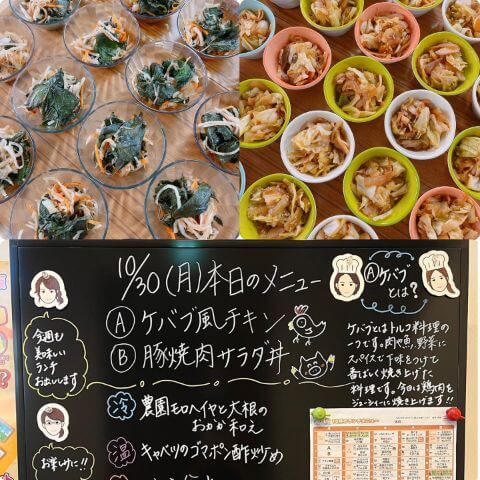 10/30(月)本日のメニュー
Ⓐケバブ風チキン
Ⓑ豚焼肉サラダ丼
冷 農園モロヘイヤと大根の
おかか和え
温 キャベツのゴマポン酢炒め
今週も
美味しい
ランチ
お出しします
お楽しみに!!
Ⓐケバブ
とは?
ケバブとはトルコ料理の
一つです。肉や魚、野菜に
スパイスで下味をつけて
香ばしく焼き上げた
料理です。今回は鶏肉を
ジューシーに焼き上げます!!